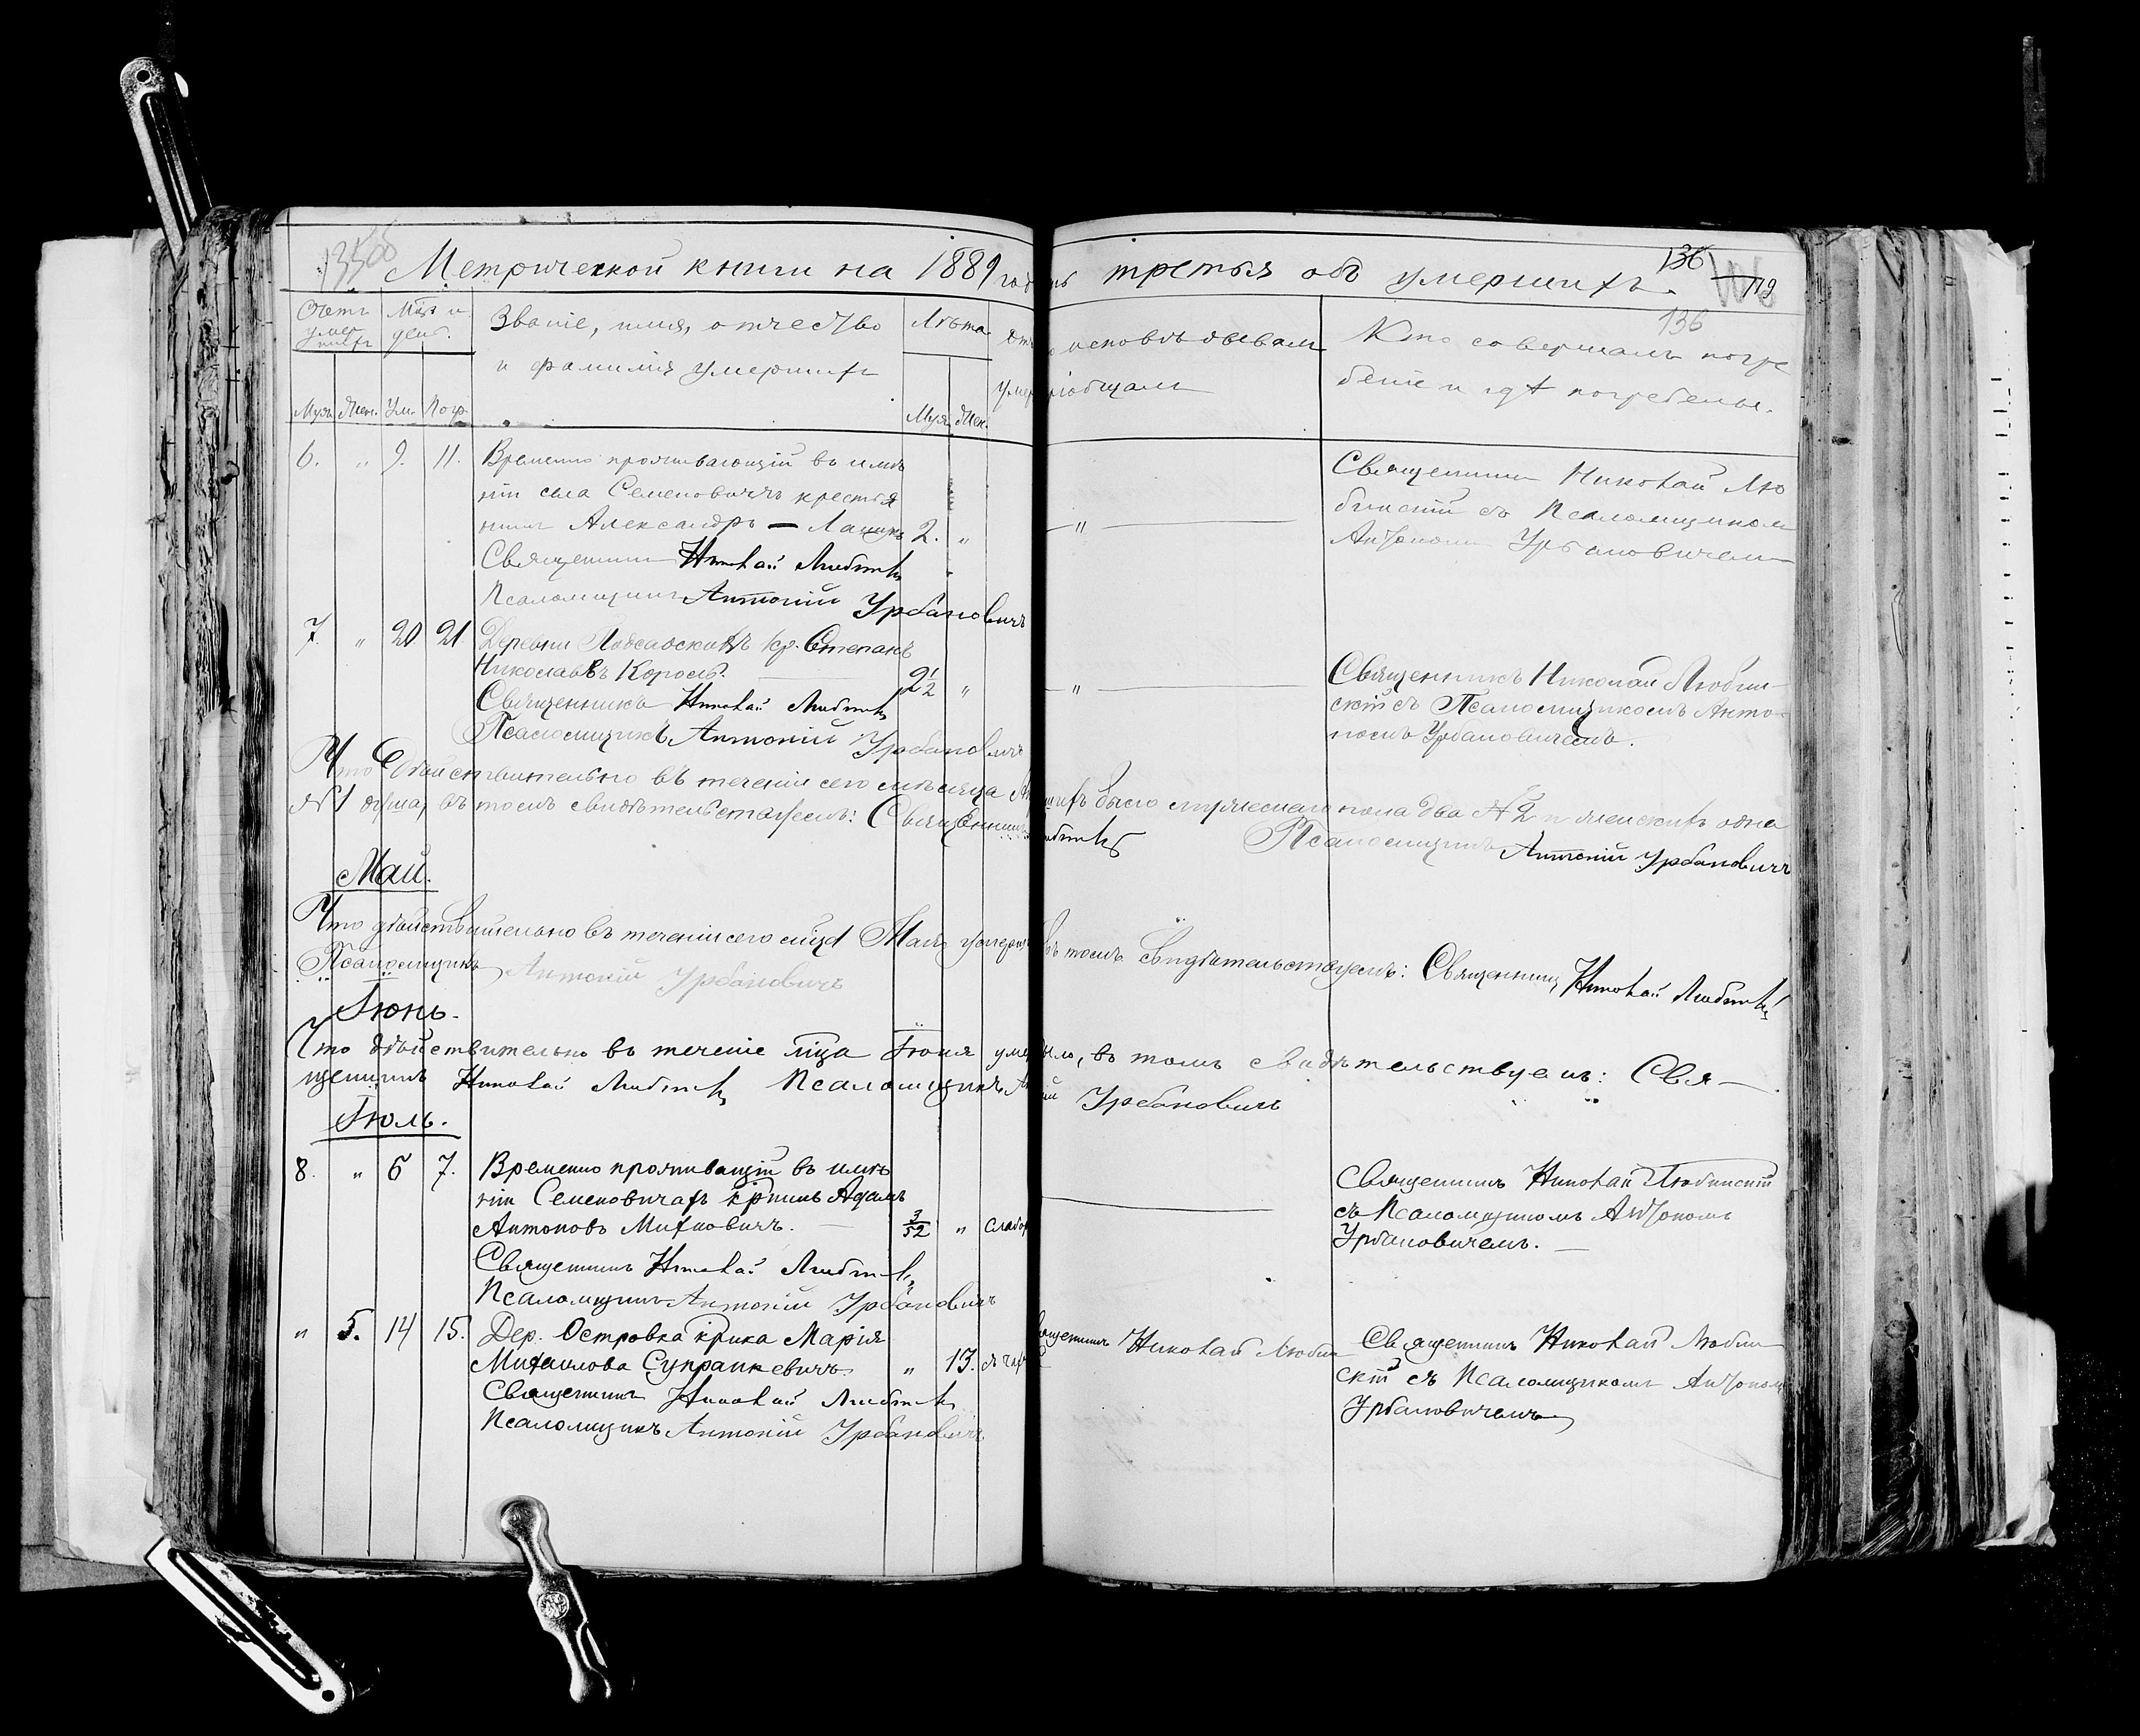 Метрической книги на 1889 год
третья объ умершихъ.
136
119
136
Счетъ умерших
Мѣс. и день.
Званіе, имя, отчество
и фамилія умершихъ
Лѣта
Муж. Жен. Ум. Погр.
Муж. Жен.
исповѣдывалъ
Кто совершалъ погре
беніе и гдѣ погребены.
6. " 9. 11. Временно проживающій въ имѣ
ніи села Семеновичъ крестья
нинъ Александръ — 2. "
Священникъ Николай
Псаломщикъ Антоній Урбановичъ
— " —
Священникъ Николай Лю
бинскій съ Псаломщикомъ
Антономъ Урбановичемъ
7. " 20 21 Деревни кр. Степанъ
Николаевъ Король. 2 1/2 "
Священникъ Николай
Псаломщикъ Антоній Урбановичъ
— " —
Священникъ Николай Любин-
скій съ Псаломщикомъ Анто-
номъ Урбановичемъ.
Что действительно въ теченіи сего мѣсяца
было мужескаго пола два №2 и женскихъ одна
№1 душа, въ томъ свидѣтельствуемъ: Священникъ
Псаломщикъ Антоній Урбановичъ
Май.
Что дѣйствительно въ теченіи сего мѣца Мая умерш
въ томъ свидѣтельствуемъ: Священникъ Николай
Псаломщикъ Антоній Урбановичъ
Іюнь.
Что дѣйствительно въ теченіе мца Іюня уме
ыло, въ томъ свидѣтельствуемъ: Свя-
щенникъ Николай Псаломщикъ Ан
ій Урбановичъ
Іюль.
8. " 6 7. Временно проживащій въ имѣ
ніи Семеновичахъ крнинъ Адамъ
Антоновъ Михновичъ. — 3/52 " слабо
Священникъ Николай
Псаломщикъ Антоній Урбановичъ
Священникъ Николай Любинскій
съ Псаломщикомъ Антономъ
Урбановичемъ. —
" 5. 14 15. Дер. Островка крнка Марія
Михайлова Супранкевичъ. " 13.
Священникъ Николай
Псаломщикъ Антоній Урбановичъ
ященникъ Николай Любин
Священникъ Николай Любин
скій съ Псаломщикомъ Антономъ
Урбановичемъ